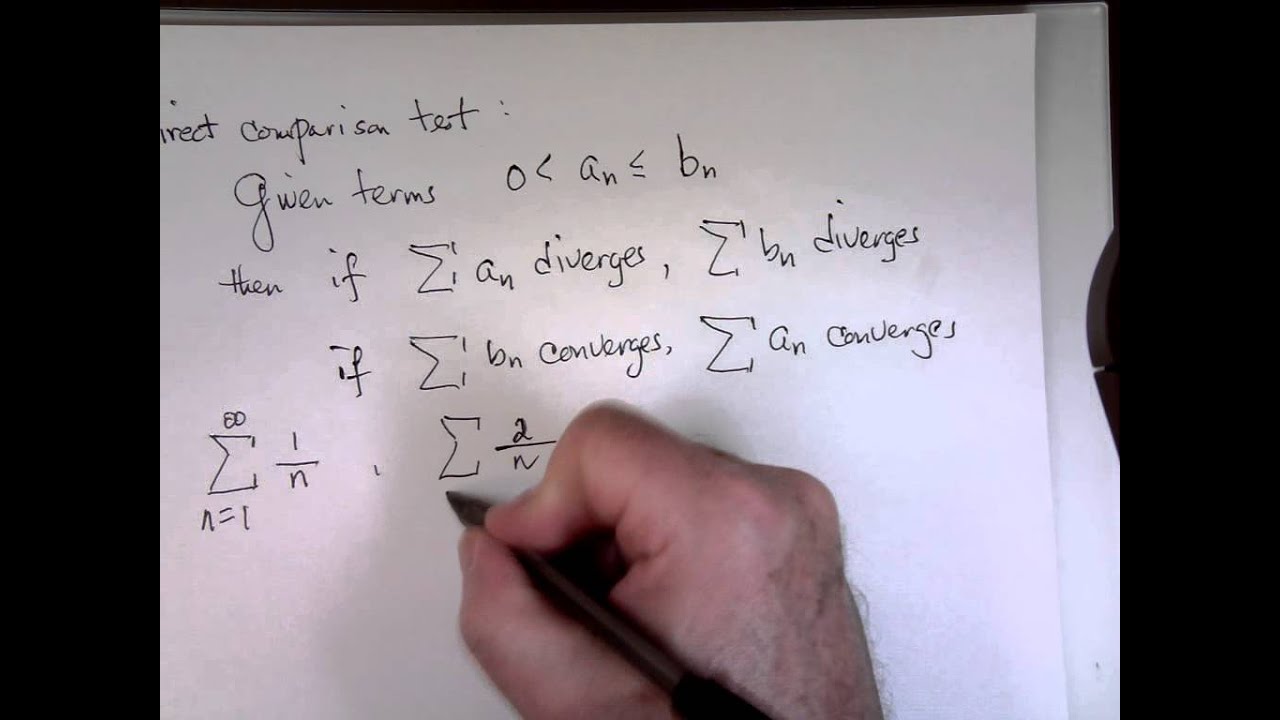 irect comparison test :
Given terms 0 < aₙ ≤ bₙ
then if ∑ aₙ diverges, ∑ bₙ diverges
if ∑ bₙ converges, ∑ aₙ converges
∞
∑ 1/n , ∑ 2/n
n=1